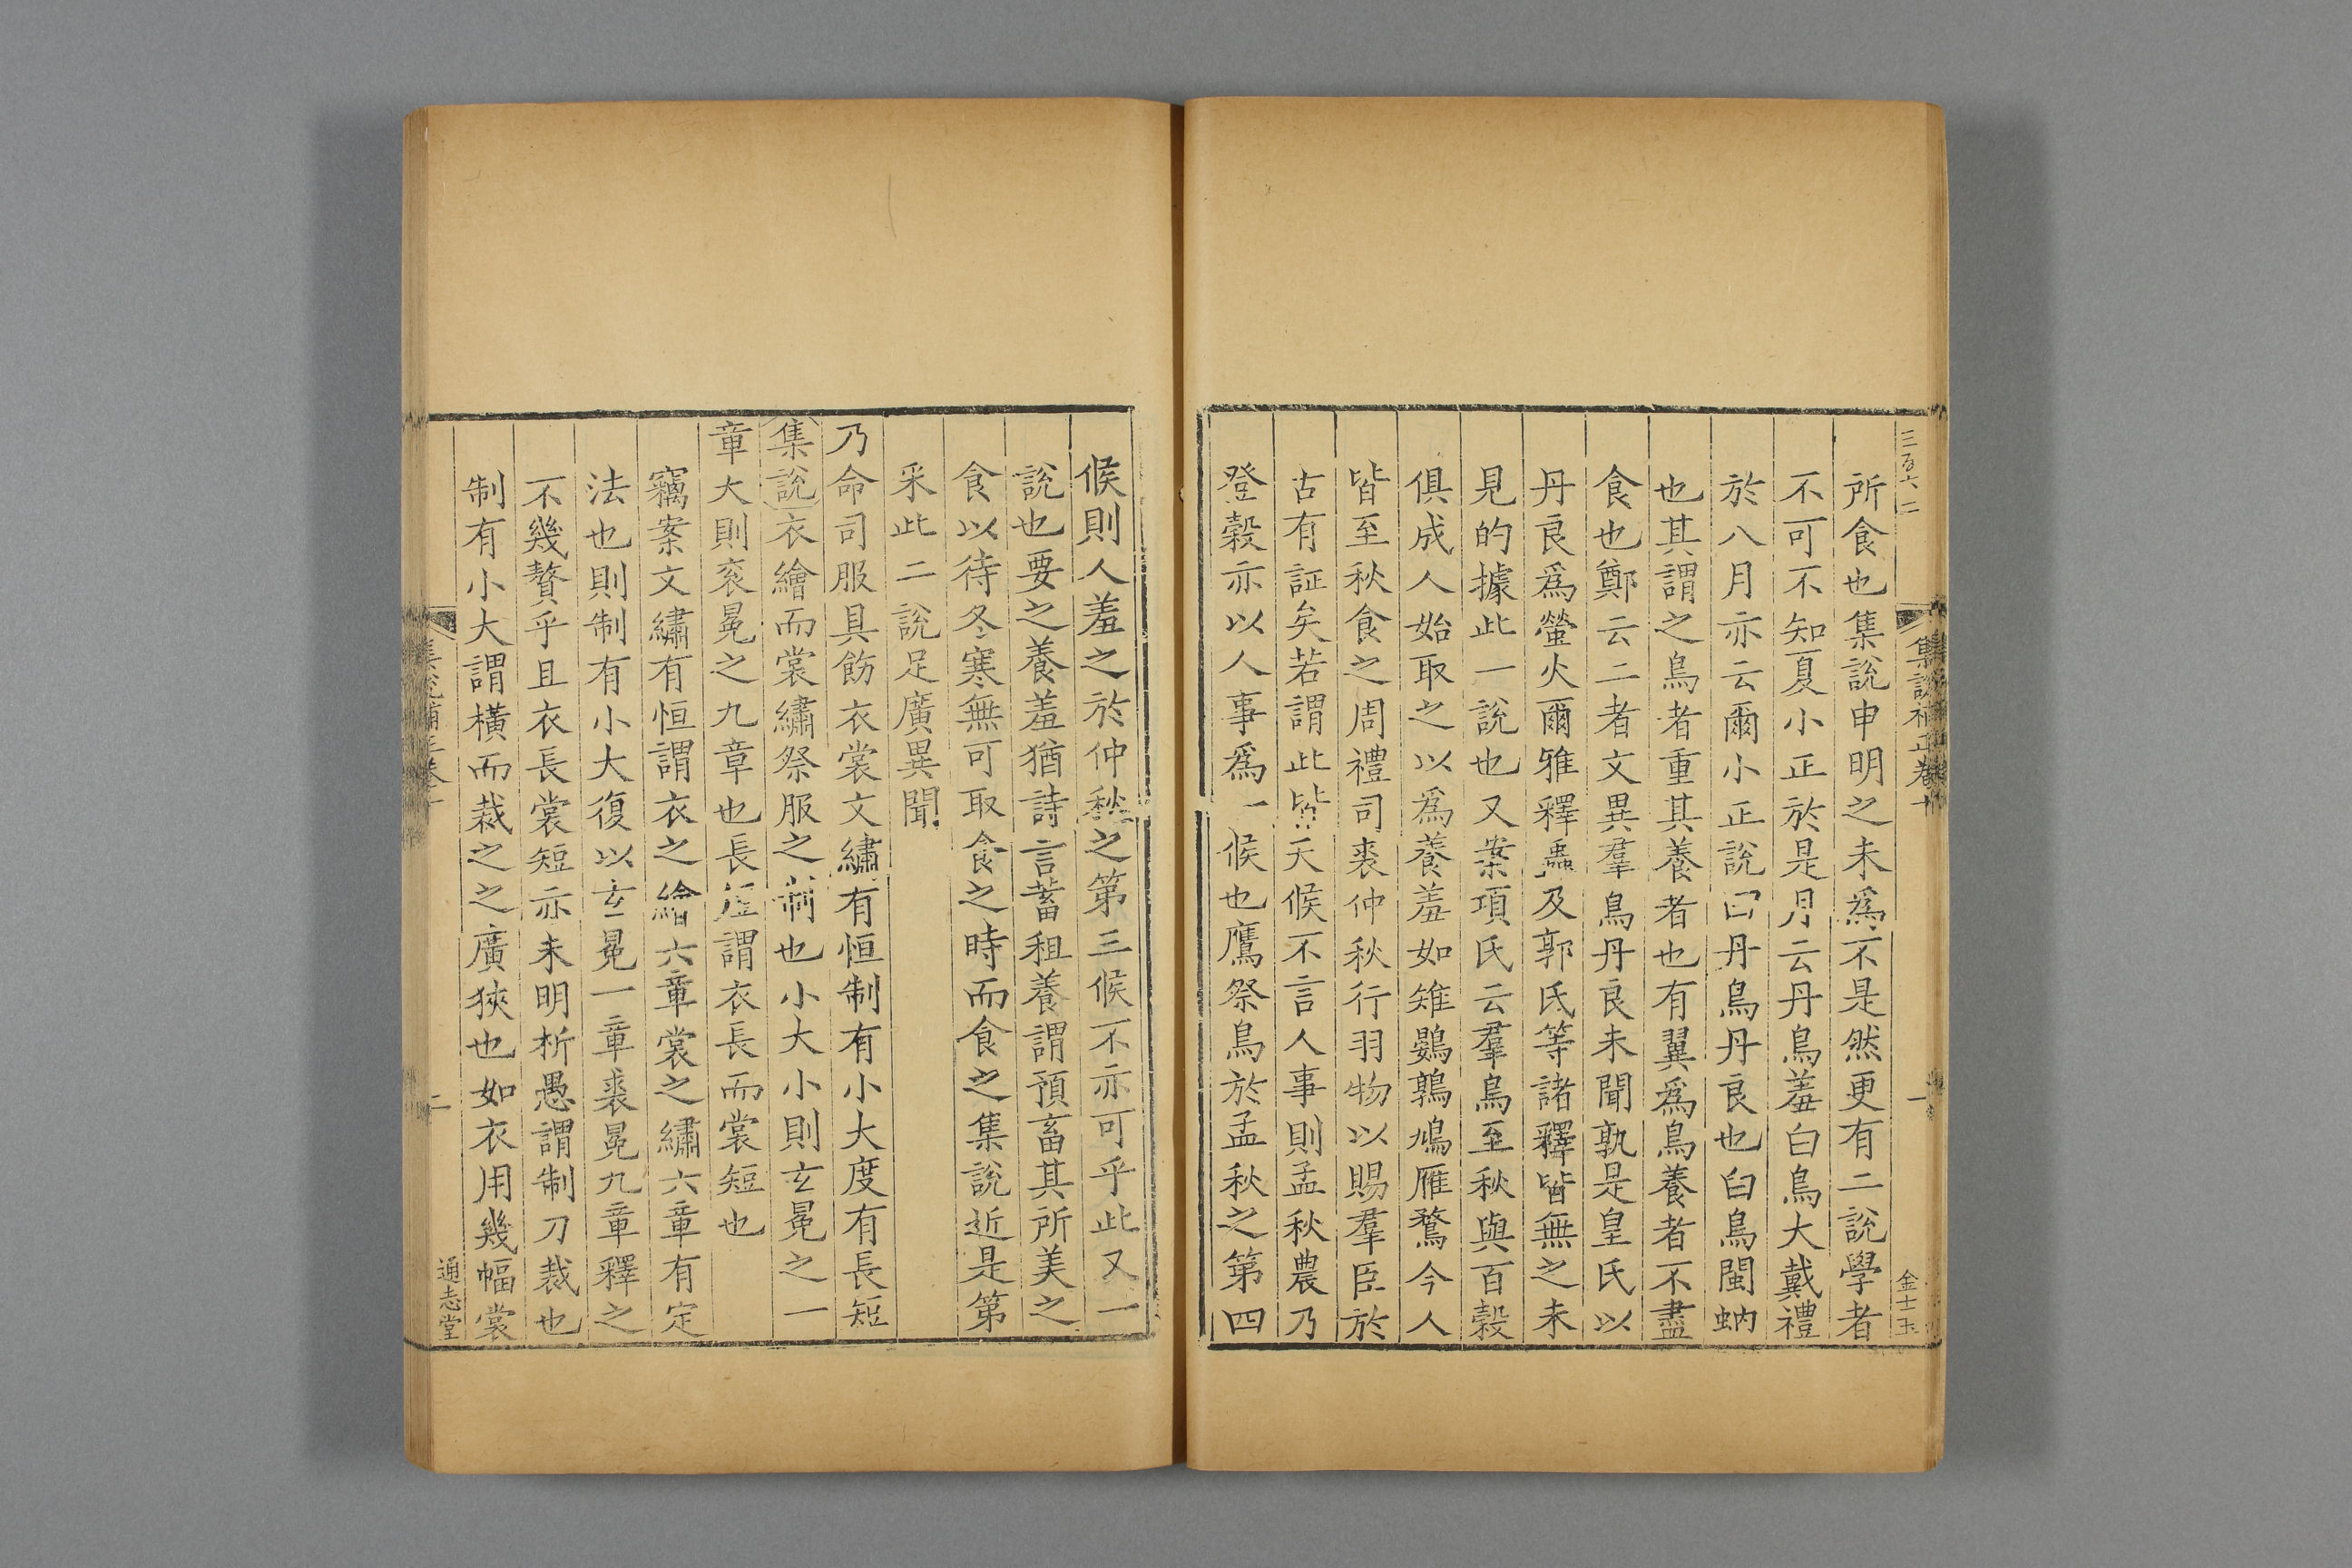 三百六二
集說補正卷十
一
金士玉
所食也集說申明之未爲不是然更有二說學者
不可不知夏小正於是月云丹鳥羞白鳥大戴禮
於八月亦云爾小正說曰丹鳥丹良也白鳥閩蚋
也其謂之鳥者重其養者也有翼爲鳥養者不盡
食也鄭云二者文異羣鳥丹良未聞孰是皇氏以
丹良爲螢火爾雅釋蟲及郭氏等諸釋皆無之未
見的據此一說也又案項氏云羣鳥至秋與百穀
俱成人始取之以爲養羞如雉鷃鶉鳩雁鶩今人
皆至秋食之周禮司裘仲秋行羽物以賜羣臣於
古有証矣若謂此皆天候不言人事則孟秋農乃
登穀亦以人事爲一候也鷹祭鳥於孟秋之第四
候則人羞之於仲秋之第三候不亦可乎此又一
說也要之養羞猶詩言蓄租養謂預畜其所美之
食以待冬寒無可取食之時而食之集說近是第
采此二說足廣異聞
乃命司服具飭衣裳文繡有恒制有小大度有長短
集說衣繪而裳繡祭服之制也小大小則玄冕之一
章大則袞冕之九章也長短謂衣長而裳短也
竊案文繡有恒謂衣之繪六章裳之繡六章有定
法也則制有小大復以玄冕一章裘冕九章釋之
不幾贅乎且衣長裳短亦未明析愚謂制刀裁也
制有小大謂橫而裁之之廣狹也如衣用幾幅裳
集說補正卷十
二
通志堂